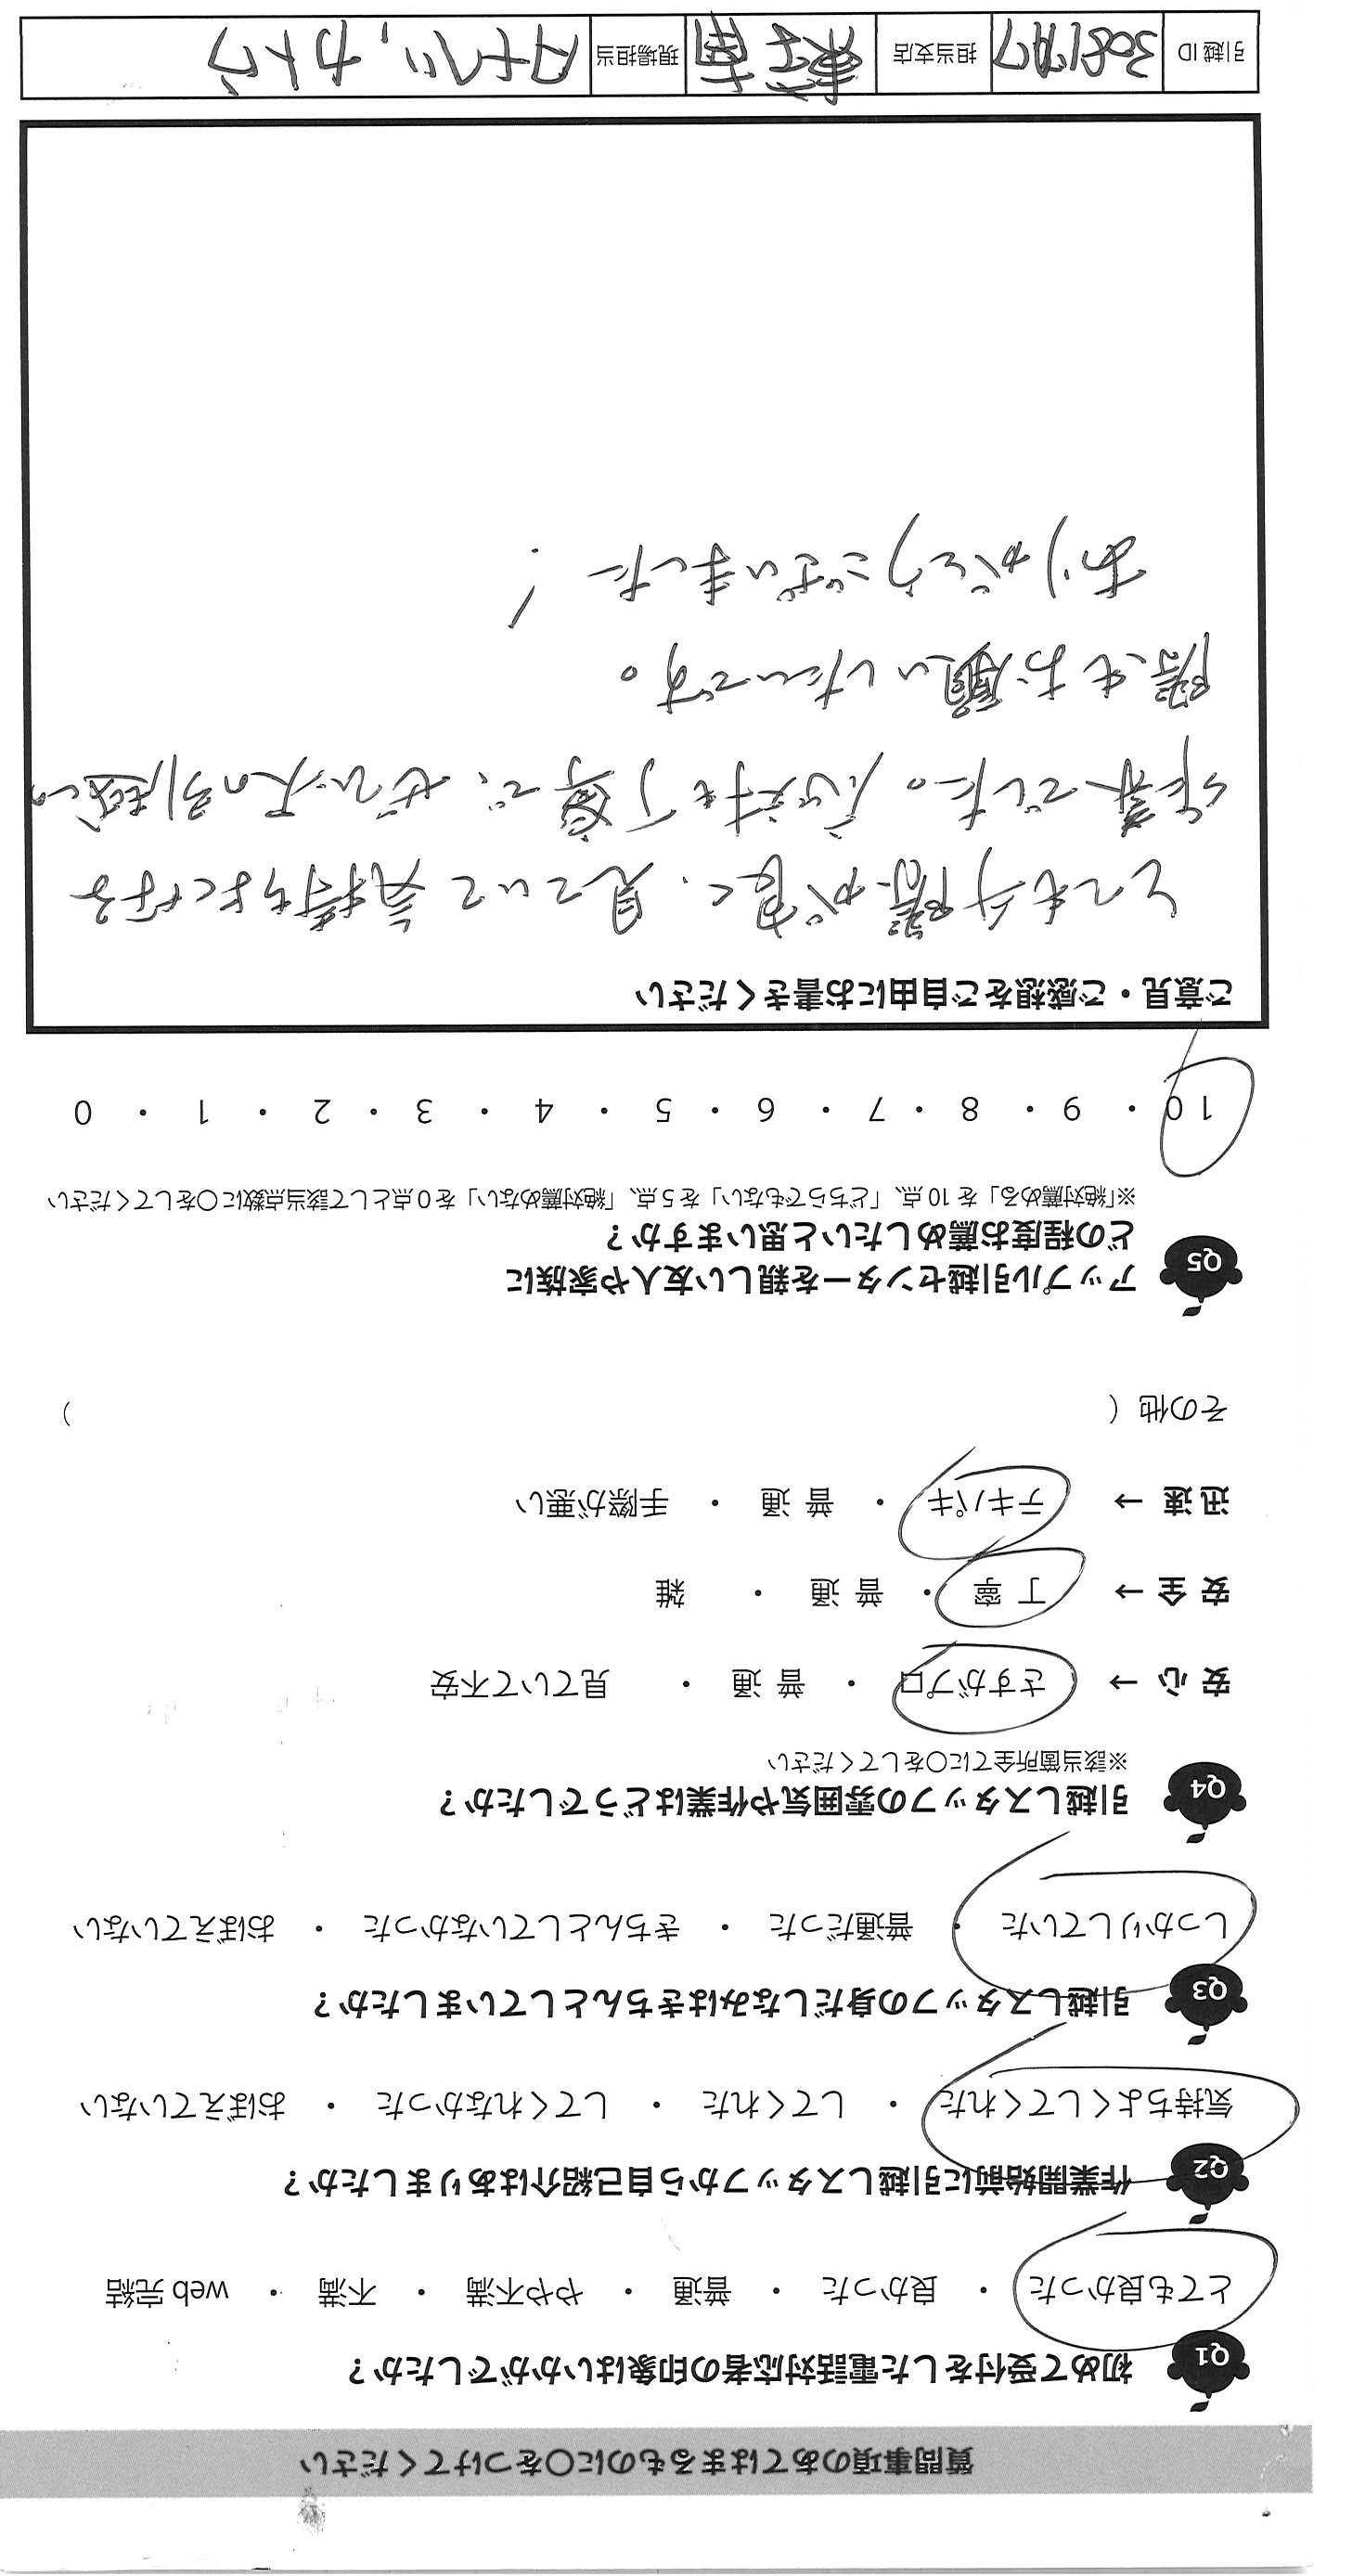 質問事項のあてはまるものに○をつけてください
Q1 初めて受付をした電話対応者の印象はいかがでしたか？
とても良かった ・ 良かった ・ 普通 ・ やや不満 ・ 不満 ・ web 完結
Q2 作業開始前に引越しスタッフから自己紹介はありましたか？
気持ちよくしてくれた ・ してくれた ・ してくれなかった ・ おぼえていない
Q3 引越しスタッフの身だしなみはきちんとしていましたか？
しっかりしていた ・ 普通だった ・ きちんとしていなかった ・ おぼえていない
Q4 引越しスタッフの雰囲気や作業はどうでしたか？
※該当箇所全てに○をしてください
安心 → さすがプロ ・ 普通 ・ 見ていて不安
安全 → 丁寧 ・ 普通 ・ 雑
迅速 → テキパキ ・ 普通 ・ 手際が悪い
その他（ ）
Q5 アップル引越センターを親しい友人や家族に
どの程度お薦めしたいと思いますか？
※「絶対薦める」を10点、「どちらでもない」を5点、「絶対薦めない」を0点として該当点数に○をしてください
10 ・ 9 ・ 8 ・ 7 ・ 6 ・ 5 ・ 4 ・ 3 ・ 2 ・ 1 ・ 0
ご意見・ご感想をご自由にお書きください
とても手際が良く、見ていて気持ちよくなる
作業でした。応対も丁寧で、ぜひ次の引越しの
際もお願いしたいです。
ありがとうございました！
引越ID 担当支店 現場担当 カトウ